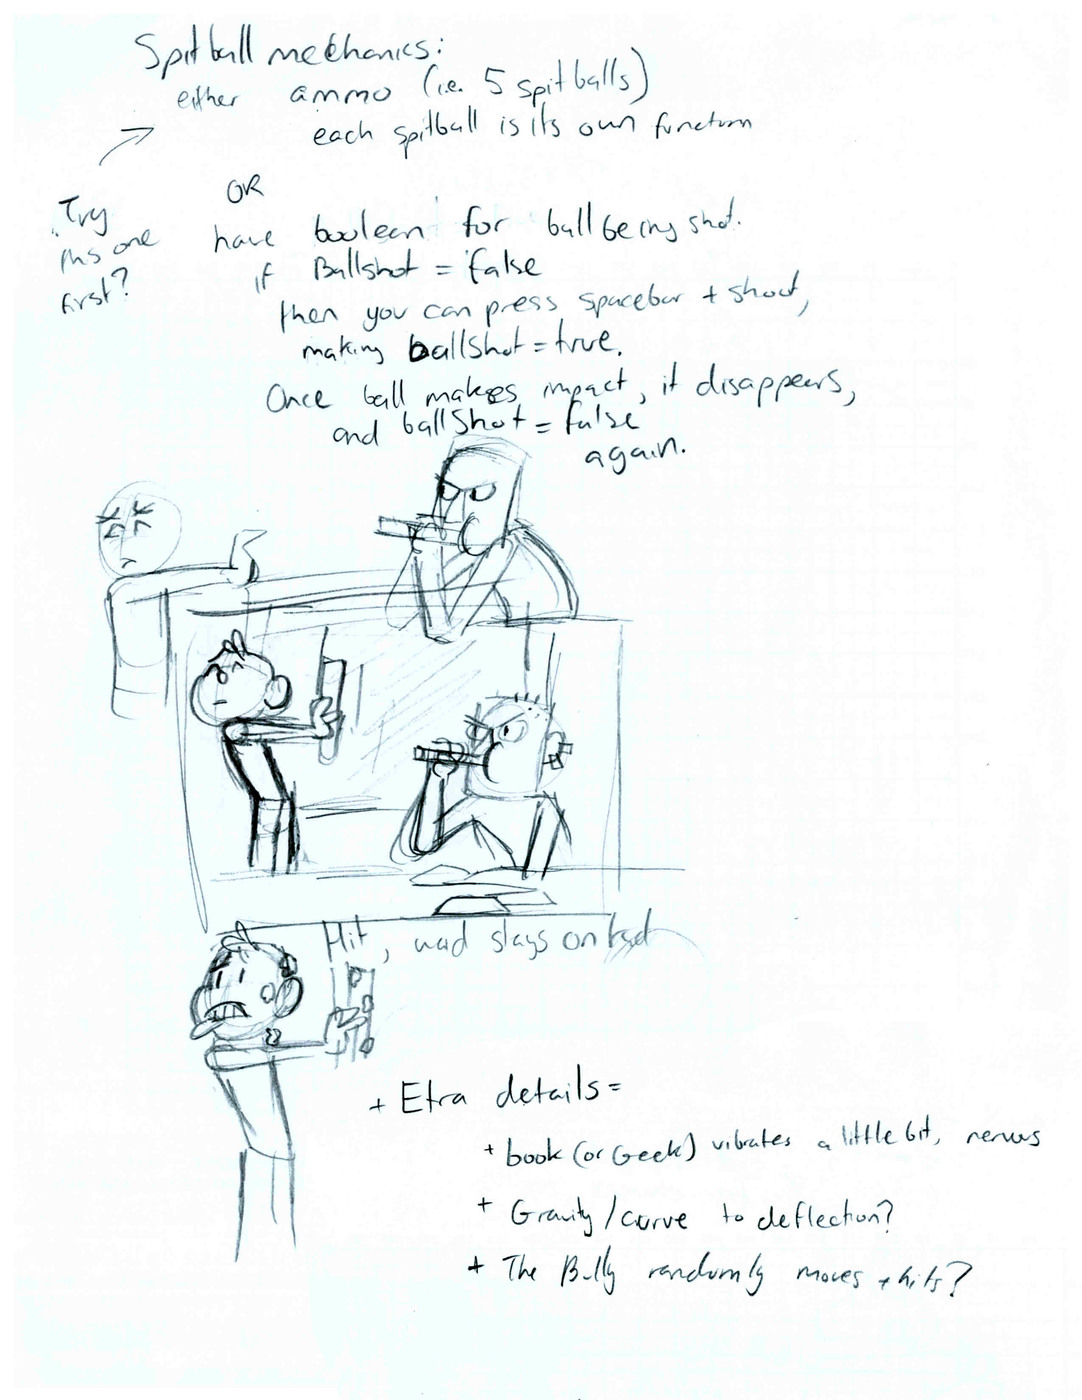 Spitball mechanics:
either ammo (i.e. 5 spitballs)
each spitball is its own function
Try
this one
first?
OR
have boolean for ball being shot.
if Ballshot = false
then you can press spacebar + shoot,
making ballshot = true.
Once ball makes impact, it disappears,
and ballShot = false
again.
Hit, wad stays on
+ Etra details =
+ book (or Geek) vibrates a little bit, nervus
+ Gravity/curve to deflection?
+ The Bully randomly moves + hits?